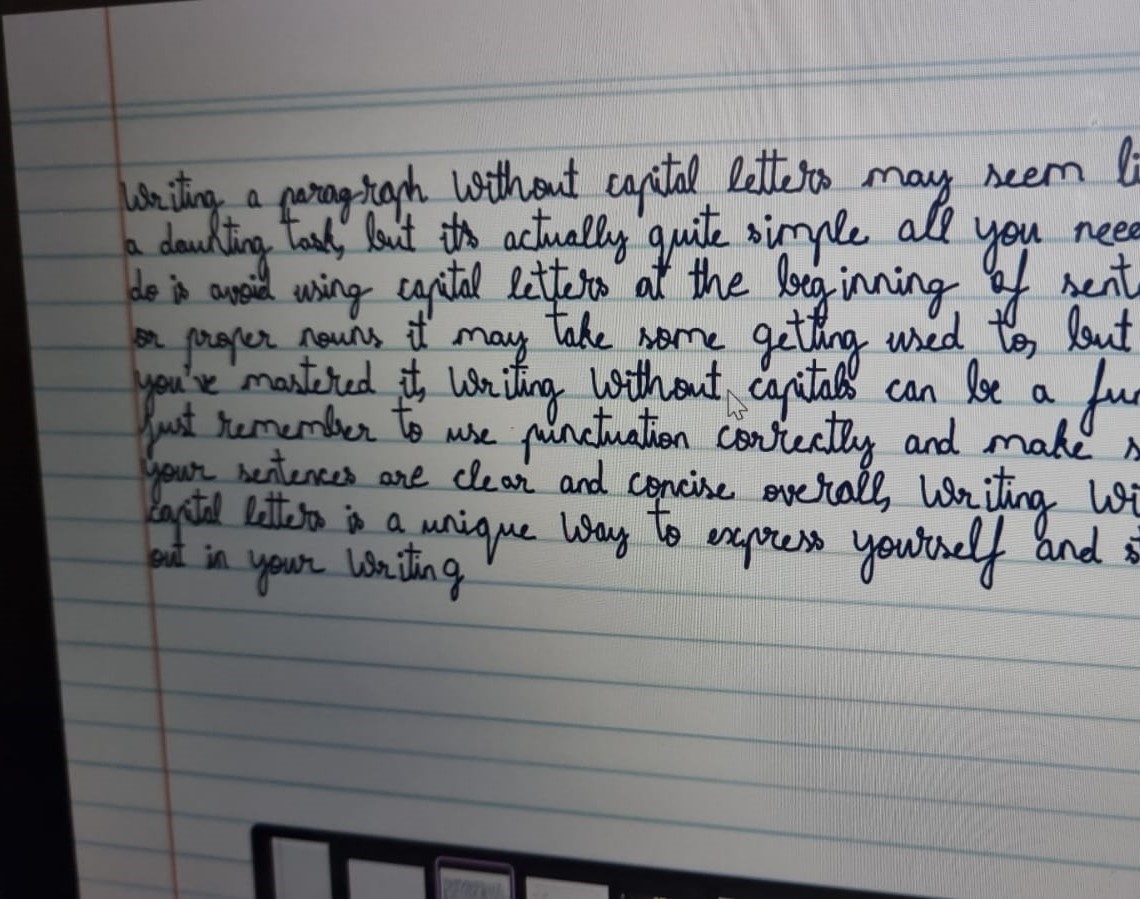 writing a paragraph without capital letters may seem
a daunting task, but it's actually quite simple all you
do is avoid using capital letters at the beginning of
or proper nouns it may take some getting used to, but
you've mastered it, writing without capitals can be a
just remember to use punctuation correctly and make
your sentences are clear and concise overall, writing
capital letters is a unique way to express yourself and
out in your writing